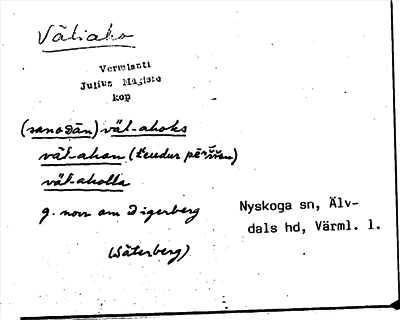 Väliaho
Vermlanti
Julius Mägiste
kop
(sanotān) väl-ahoks
väl-ahon (teudur pērīšen)
väl-aholla
g. norr om Digerberg
(Säterberg)
Nyskoga sn, Älv-
dals hd, Värml. l.